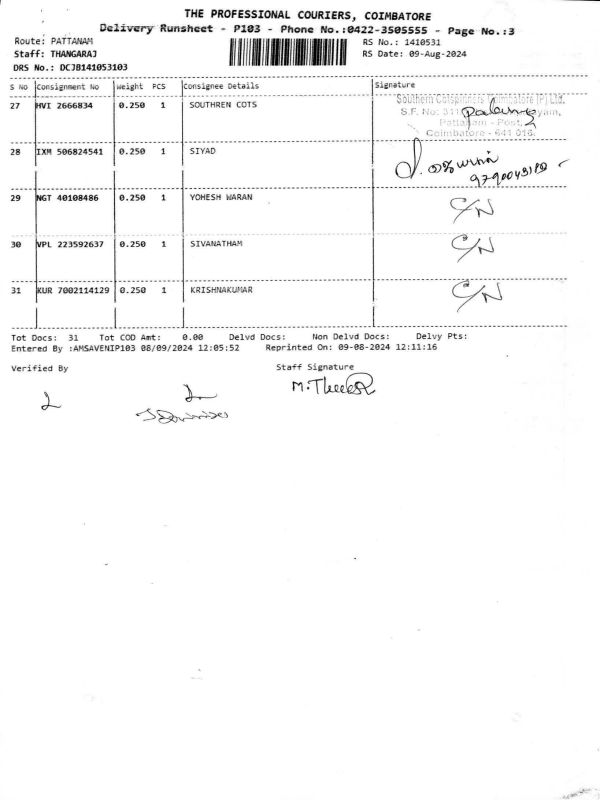 THE PROFESSIONAL COURIERS, COIMBATORE
Delivery Runsheet - P103 - Phone No.:0422-3505555 - Page No.:3
Route: PATTANAM RS No.: 1410531
Staff: THANGARAJ RS Date: 09-Aug-2024
DRS No.: DCJB141053103
S No Consignment No Weight PCS Consignee Details Signature
27 HVI 2666834 0.250 1 SOUTHREN COTS
Southern Cotspinners Coimbatore (P) Ltd.
S.F. No: 311
Pattanam - Post,
Coimbatore - 641 016.
28 IXM 506824541 0.250 1 SIYAD
29 NGT 40108486 0.250 1 YOHESH WARAN C/N
30 VPL 223592637 0.250 1 SIVANATHAM C/N
31 KUR 7002114129 0.250 1 KRISHNAKUMAR C/N
Tot Docs: 31 Tot COD Amt: 0.00 Delvd Docs: Non Delvd Docs: Delvy Pts:
Entered By :AMSAVENIP103 08/09/2024 12:05:52 Reprinted On: 09-08-2024 12:11:16
Verified By Staff Signature